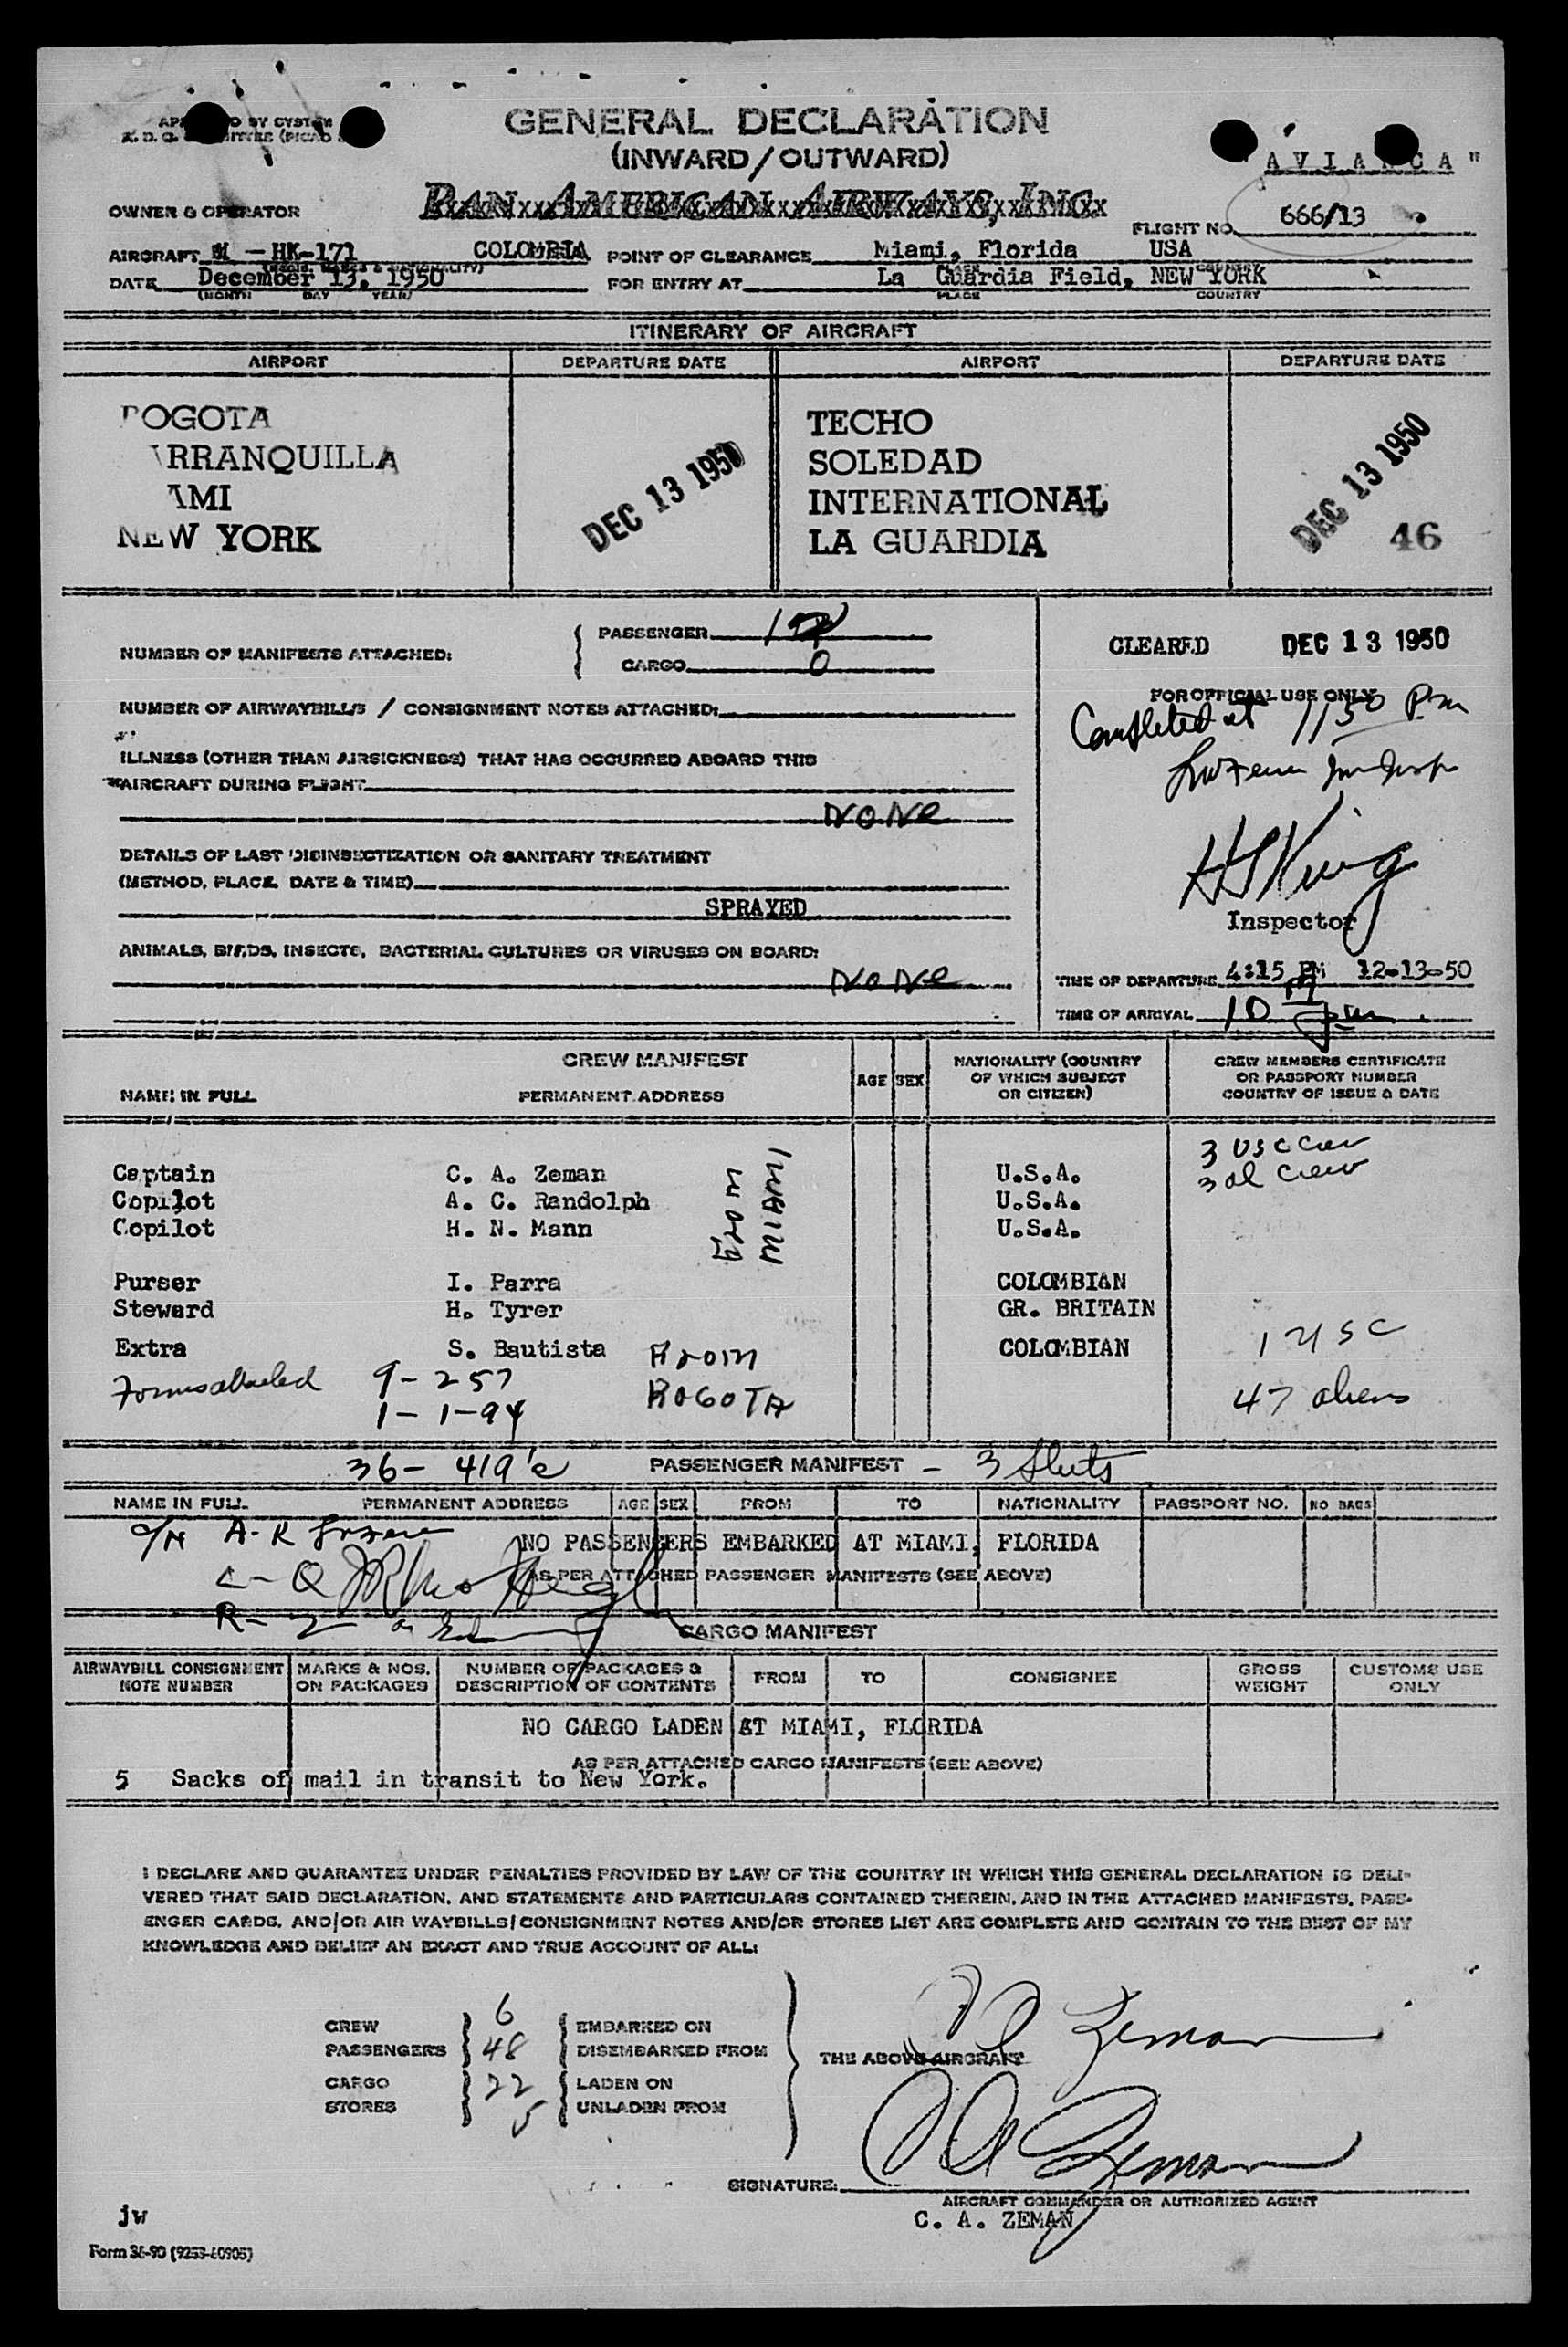 GENERAL DECLARATION
(INWARD/OUTWARD)
"AVIANCA"
PAN AMERICAN AIRWAYS, INC.
OWNER & OPERATOR
FLIGHT NO. 666/13
AIRCRAFT HK-171 COLOMBIA POINT OF CLEARANCE Miami, Florida USA
DATE December 13, 1950 FOR ENTRY AT La Guardia Field, NEW YORK
(MONTH DAY YEAR) PLACE COUNTRY
ITINERARY OF AIRCRAFT
AIRPORT DEPARTURE DATE AIRPORT DEPARTURE DATE
OGOTA TECHO
RRANQUILLA SOLEDAD
AMI INTERNATIONAL
NEW YORK LA GUARDIA
DEC 13 1950 DEC 13 1950
46
NUMBER OF MANIFESTS ATTACHED: PASSENGER
CARGO 0
CLEARED DEC 13 1950
NUMBER OF AIRWAYBILLS / CONSIGNMENT NOTES ATTACHED:
FOR OFFICIAL USE ONLY
Completed at 1150 Pm
ILLNESS (OTHER THAN AIRSICKNESS) THAT HAS OCCURRED ABOARD THIS
AIRCRAFT DURING FLIGHT
NONE
DETAILS OF LAST DISINSECTIZATION OR SANITARY TREATMENT
(METHOD, PLACE, DATE & TIME)
SPRAYED
HS King
Inspector
ANIMALS, BIRDS, INSECTS, BACTERIAL CULTURES OR VIRUSES ON BOARD:
NONE
TIME OF DEPARTURE 4:15 PM 12-13-50
TIME OF ARRIVAL 10 pm
CREW MANIFEST
NAME IN FULL PERMANENT ADDRESS AGE SEX NATIONALITY (COUNTRY OF WHICH SUBJECT OR CITIZEN) CREW MEMBERS CERTIFICATE OR PASSPORT NUMBER COUNTRY OF ISSUE & DATE
3 USC Crew
3 al Crew
Captain C. A. Zeman U.S.A.
Copilot A. C. Randolph U.S.A.
Copilot H. N. Mann U.S.A.
From MIAMI
Purser I. Parra COLOMBIAN
Steward H. Tyrer GR. BRITAIN
Extra S. Bautista From COLOMBIAN
BOGOTA
1 USC
47 aliens
Forms attached 9-257
1-1-94
36-419's PASSENGER MANIFEST - 3 Sheets
NAME IN FULL PERMANENT ADDRESS AGE SEX FROM TO NATIONALITY PASSPORT NO. NO BAGS
NO PASSENGERS EMBARKED AT MIAMI, FLORIDA
AS PER ATTACHED PASSENGER MANIFESTS (SEE ABOVE)
CARGO MANIFEST
AIRWAYBILL CONSIGNMENT NOTE NUMBER MARKS & NOS. ON PACKAGES NUMBER OF PACKAGES & DESCRIPTION OF CONTENTS FROM TO CONSIGNEE GROSS WEIGHT CUSTOMS USE ONLY
NO CARGO LADEN AT MIAMI, FLORIDA
AS PER ATTACHED CARGO MANIFESTS (SEE ABOVE)
5 Sacks of mail in transit to New York.
I DECLARE AND GUARANTEE UNDER PENALTIES PROVIDED BY LAW OF THE COUNTRY IN WHICH THIS GENERAL DECLARATION IS DELI-
VERED THAT SAID DECLARATION, AND STATEMENTS AND PARTICULARS CONTAINED THEREIN, AND IN THE ATTACHED MANIFESTS, PASS-
ENGER CARDS, AND/OR AIR WAYBILLS/CONSIGNMENT NOTES AND/OR STORES LIST ARE COMPLETE AND CONTAIN TO THE BEST OF MY
KNOWLEDGE AND BELIEF AN EXACT AND TRUE ACCOUNT OF ALL:
CREW 6 EMBARKED ON
PASSENGERS 48 DISEMBARKED FROM
THE ABOVE AIRCRAFT
CARGO 22 LADEN ON
STORES 5 UNLADEN FROM
C A Zeman
SIGNATURE: C A Zeman
AIRCRAFT COMMANDER OR AUTHORIZED AGENT
C. A. ZEMAN
jw
Form 36-90 (9253-60905)